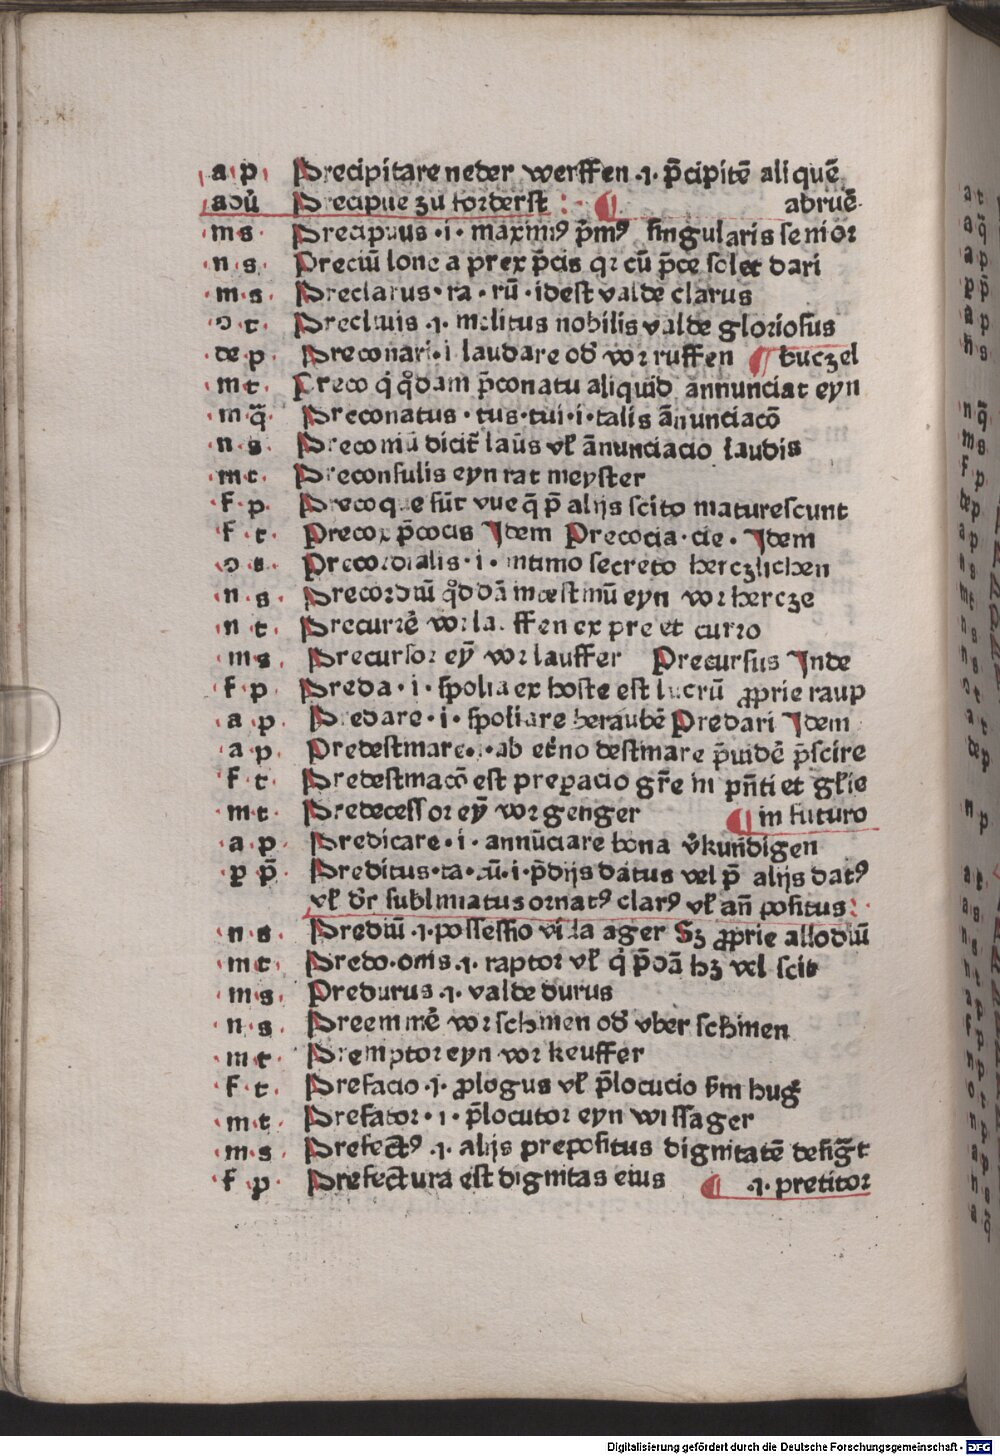 a p Precipitare neder werffen .i. p̄cipitē ali quē
adū Precipue zu forderst :· ¶ abruē
m s Precipuus · i · maximꝰ p̄mꝰ singularis senior
n s Preciū lonc a prex p̄cis qꝛ cū p̄ce solet dari
m s Preclarus · ra · rū · idest valde clarus
ↄ t Precluuis .i. inclitus nobilis valde gloriosus
de p Preconari · i laudare od̄ vor ruffen ¶ buczel
m t Preco q̇ qͦdam p̄conatu aliquid annunciat eyn
m q̄ Preconatus · tus · tui · i · talis ānunciacō
n s Preconiū dicit̄ laūs vl̄ ānunciacio laudis
m t Preconsulis eyn rat meyster
f p Precoque sūt vue q̄ p̄ alijs scito maturescunt
f t Precox p̄cocis Idem Precocia · cie · Idem
ↄ s Precordialis · i · intimo secreto herczlichen
n s Precordiū qͦd dā intestinū eyn vor hercze
n t Precurrē vor lauffen ex pre et curro
m s Precursor eȳ vorlauffer Precursus Inde
f p Preda · i · spolia ex hoste est lucrū ꝓprie raup
a p Predare · i · spoliare beraubē Predari Idem
a p Predestinare · i · ab et̄no destinare p̄uidē p̄scire
f t Predestinacō est preparacio gr̄e in pn̄ti et gl̄ie
m t Predecessor eȳ vorgenger ¶ in futuro
a p Predicare · i · annūciare bona v̄kundigen
p p̄ Preditus · ta · tū · i · p̄dijs datus vel p̄ alijs datꝰ
vl̄ dr̄ sublimatus ornatꝰ clarꝰ vl̄ an̄ positus :·
n s Prediū .i. possessio villa ager Sꝫ ꝓprie allodiū
m t Predo · onis .i. raptor vl̄ q̇ p̄dā hꝫ vel scit
m s Predurus .i. valde durus
n s Preeminē vorschinen od̄ vber schinen
m t Preemptor eyn vor keuffer
f t Prefacio .i. ꝓlogus vl̄ p̄locucio s̄m huḡ
m t Prefator · i · p̄locutor eyn wissager
m s Prefectꝰ .i. alijs prepositus dignitatē desiḡt
f p Prefectura est dignitas eius ¶ .i. pretitor
Digitalisierung gefördert durch die Deutsche Forschungsgemeinschaft - DFG